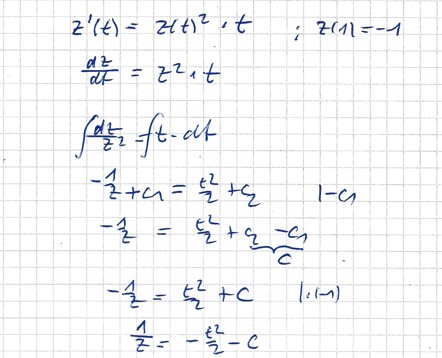 z'(t) = z(t)² · t ; z(1) = -1
dz/dt = z² · t
∫ dz/z² = ∫ t · dt
-1/z + c₁ = t²/2 + c₂ |-c₁
-1/z = t²/2 + c₂ - c₁
C
-1/z = t²/2 + C |·(-1)
1/z = -t²/2 - C